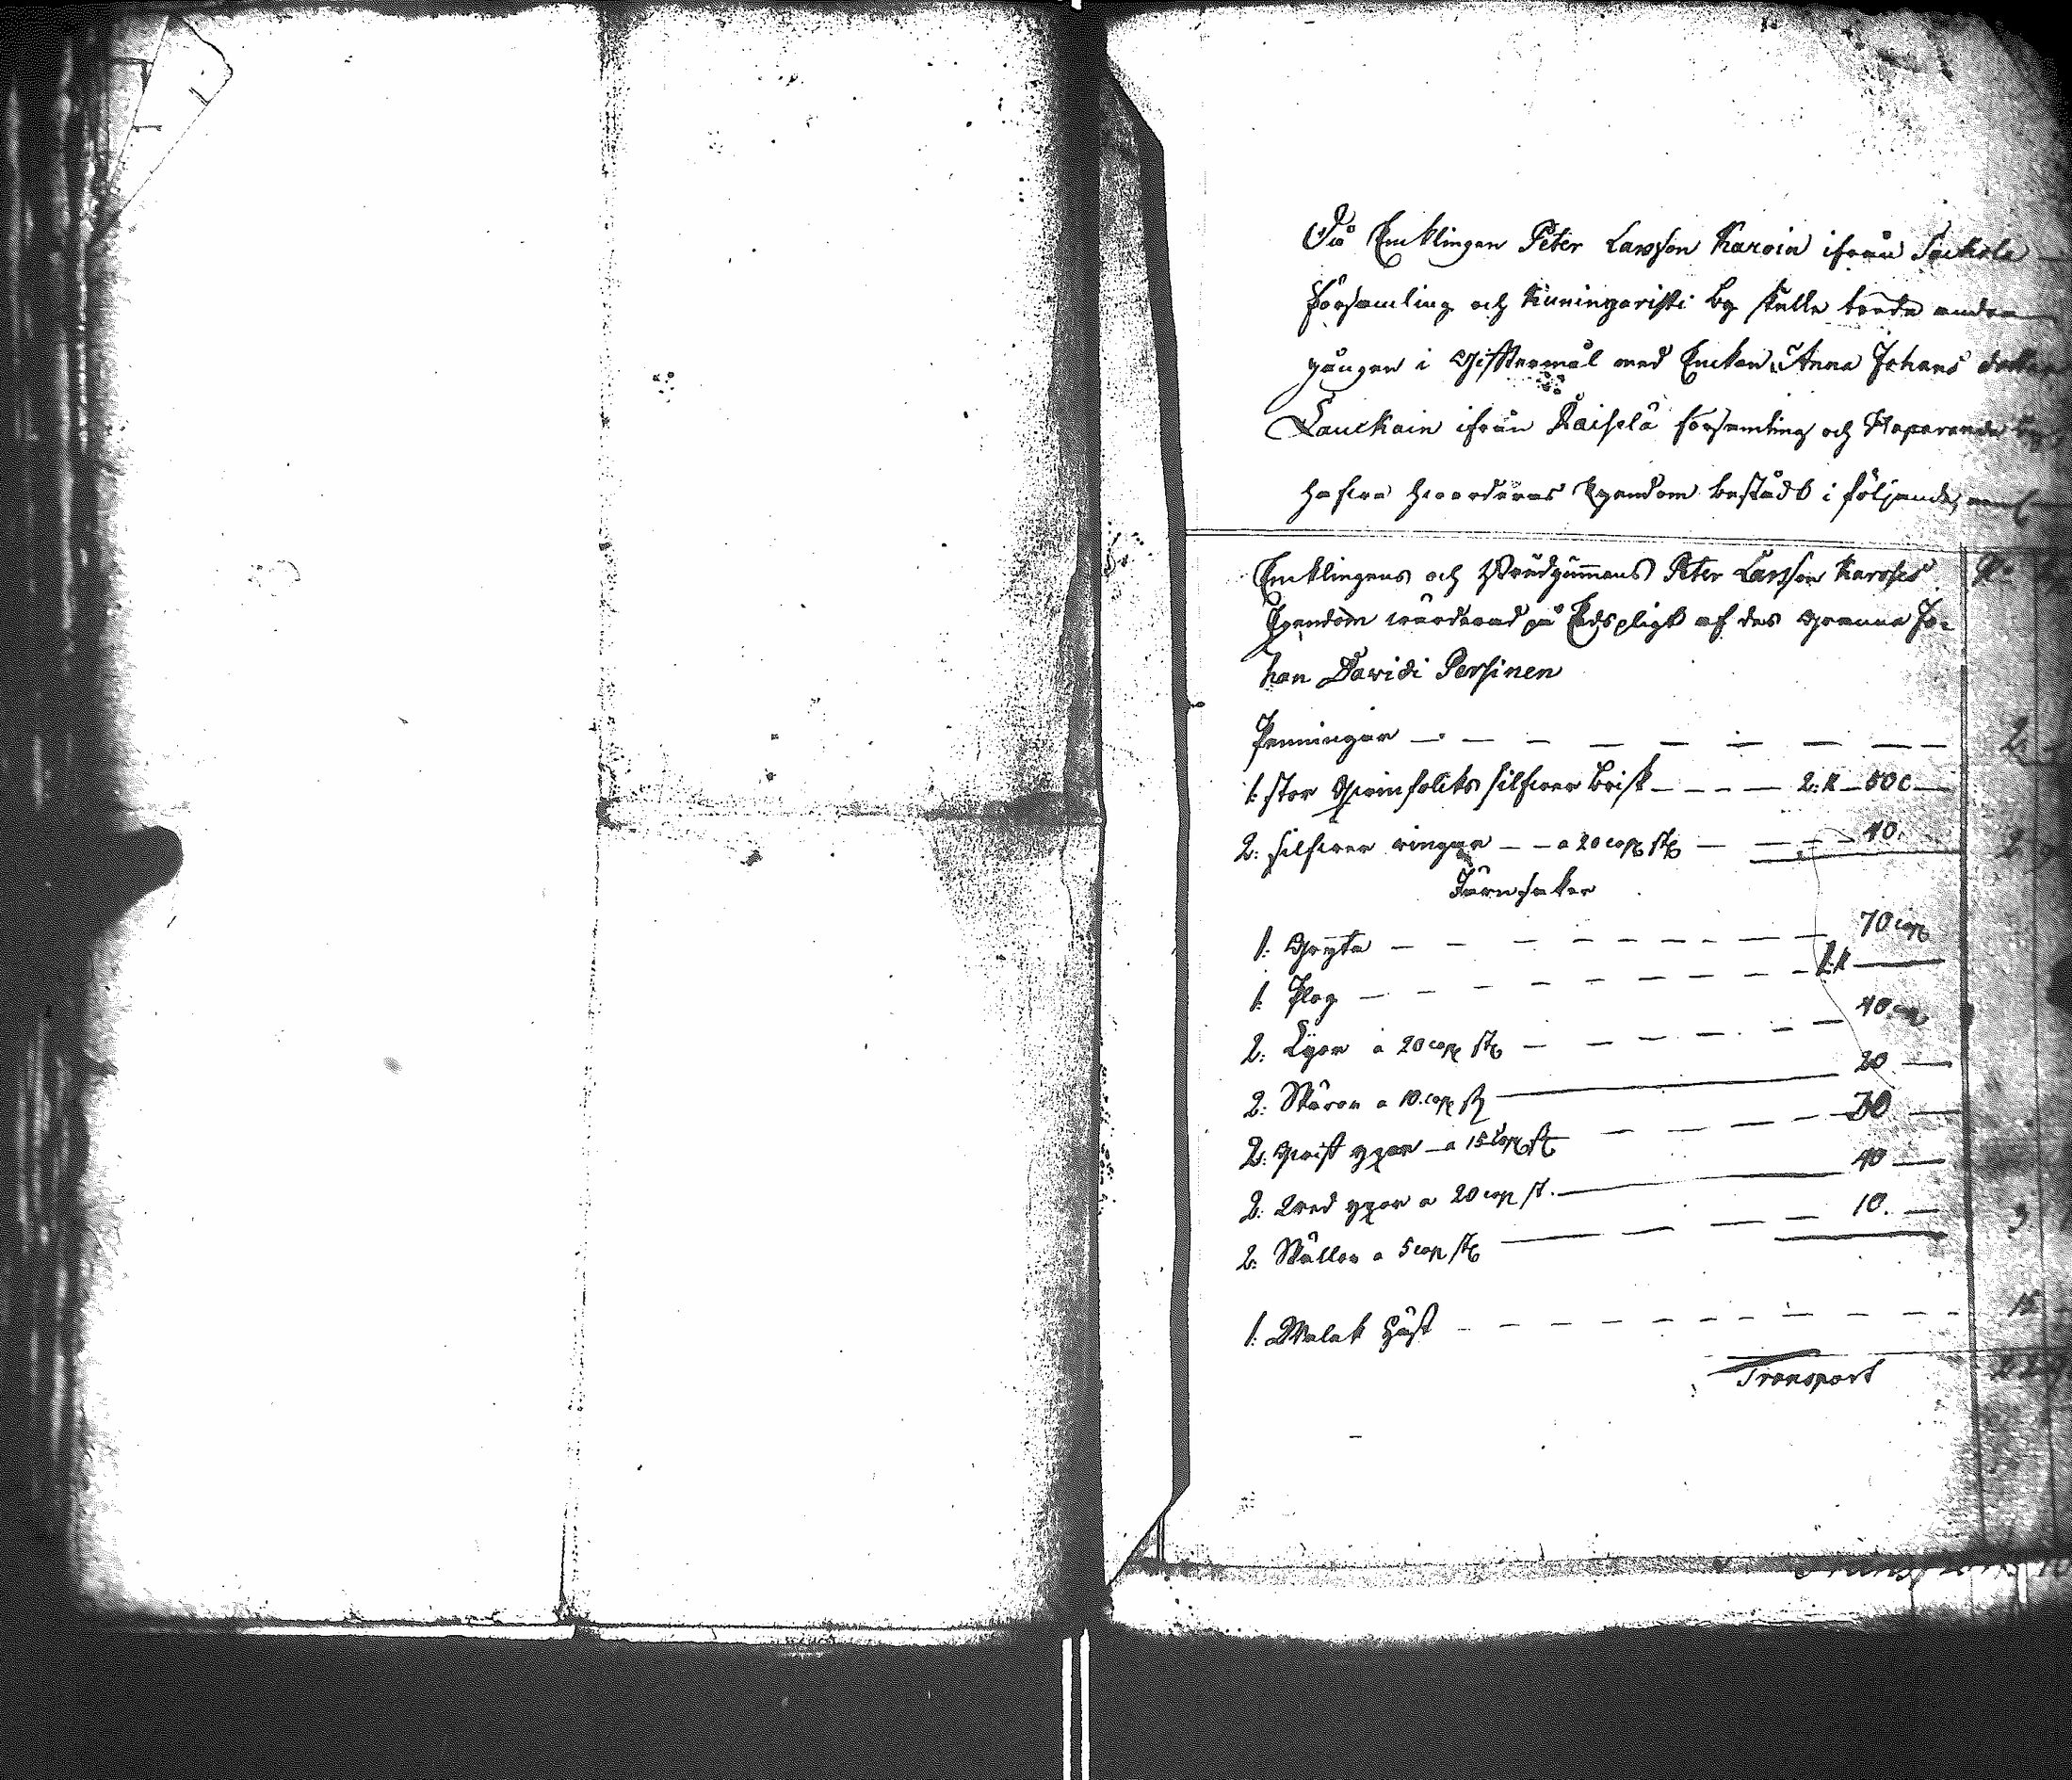 Då Encklingen Peter Larsson Karoin ifrån Sackola
församling och Kuningaristi by skulle träda andra
gången i Gifftermål med Enckan Anna Johans dotter
Lauckain ifrån Räisela församling och Haparanda by
hafwa hwarderas Egendom bestådt i följande, neml
Encklingens och Brudgummans Peter Larsson Karoses
Egendom wärderad på Edsplight af des granna Jo-
han Davidi Persinen
Penningar 2
1: stor Spinfolks silfwer brisk 2: R 50 C
2: silfwer ringar a 20 cop st 40. 2
Järnsaker
1: Gryta 70 cop
1: Plog 1: R
2: Lyor a 20 cop st 40 cop
2: Skäror a 10. cop st 20
2: Grist yxor a 15 Cop st 30
2: Bred yxor a 20 cop st. 40
2: Skällor a 5 cop st 10. 3
1: Walak Häst 15
Transport
Transport